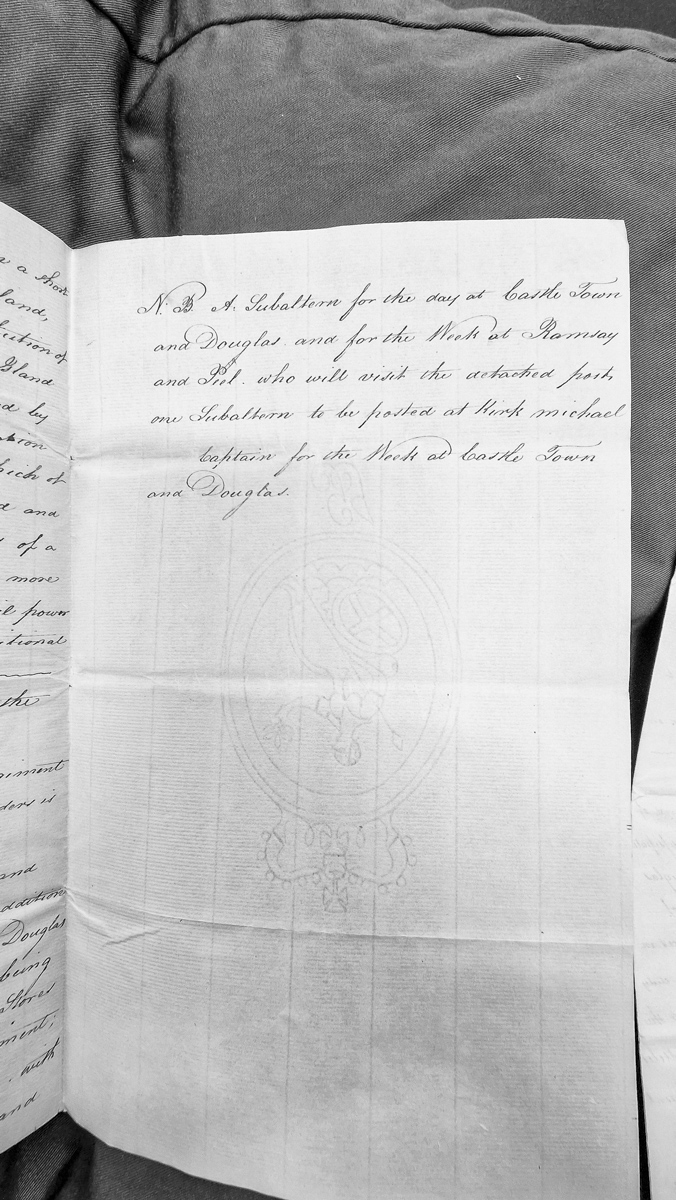 a shor
land,
Island
d by
hich of
d and
of a
more
il power
itional
the
iment
ders is
and
ddition
Douglas
being
Stores
ment,
with
and
N.B. A. Subaltern for the day at Castle Town
and Douglas. and for the Week at Ramsay
and Peel. who will visit the detached posts
one Subaltern to be posted at Kirk michael
Captain for the Week at Castle Town
and Douglas.